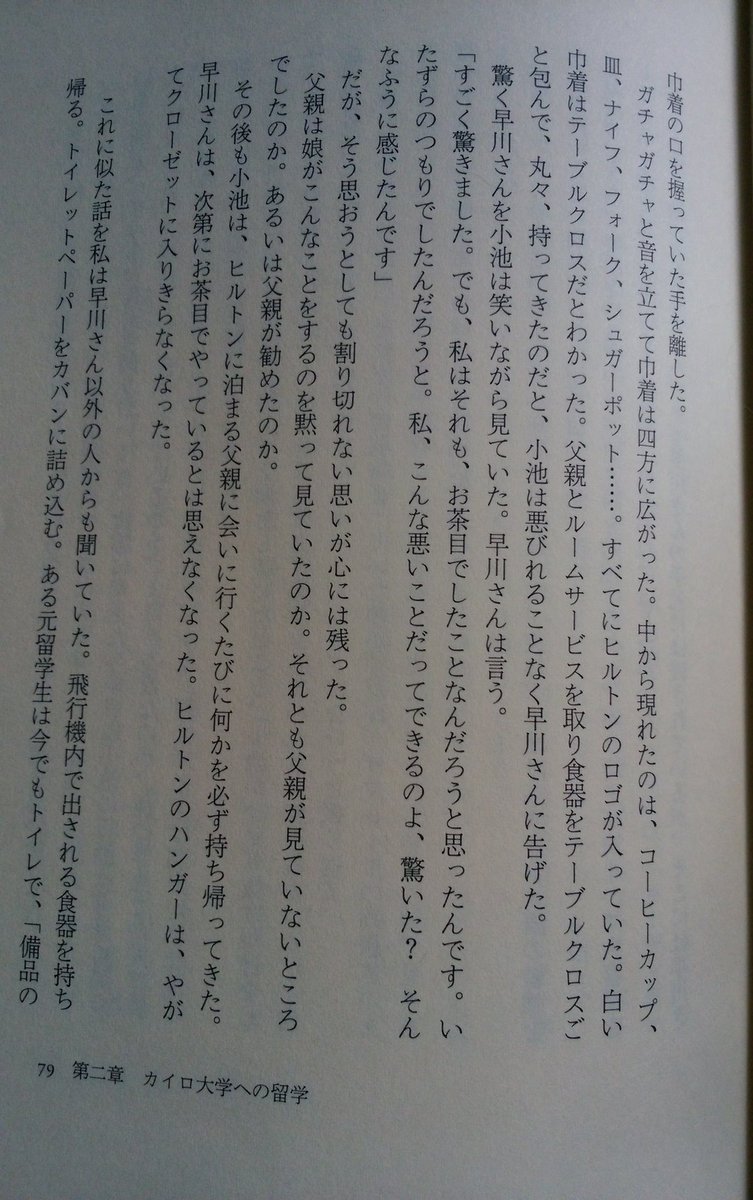 巾着の口を握っていた手を離した。
ガチャガチャと音を立てて巾着は四方に広がった。中から現れたのは、コーヒーカップ、
皿、ナイフ、フォーク、シュガーポット……。すべてにヒルトンのロゴが入っていた。白い
巾着はテーブルクロスだとわかった。父親とルームサービスを取り食器をテーブルクロスご
と包んで、丸々、持ってきたのだと、小池は悪びれることなく早川さんに告げた。
驚く早川さんを小池は笑いながら見ていた。早川さんは言う。
「すごく驚きました。でも、私はそれも、お茶目でしたことなんだろうと思ったんです。い
たずらのつもりでしたんだろうと。私、こんな悪いことだってできるのよ、驚いた？　そん
なふうに感じたんです」
だが、そう思おうとしても割り切れない思いが心には残った。
父親は娘がこんなことをするのを黙って見ていたのか。それとも父親が見ていないところ
でしたのか。あるいは父親が勧めたのか。
その後も小池は、ヒルトンに泊まる父親に会いに行くたびに何かを必ず持ち帰ってきた。
早川さんは、次第にお茶目でやっているとは思えなくなった。ヒルトンのハンガーは、やが
てクローゼットに入りきらなくなった。
これに似た話を私は早川さん以外の人からも聞いていた。飛行機内で出される食器を持ち
帰る。トイレットペーパーをカバンに詰め込む。ある元留学生は今でもトイレで、「備品の
79　第二章　カイロ大学への留学